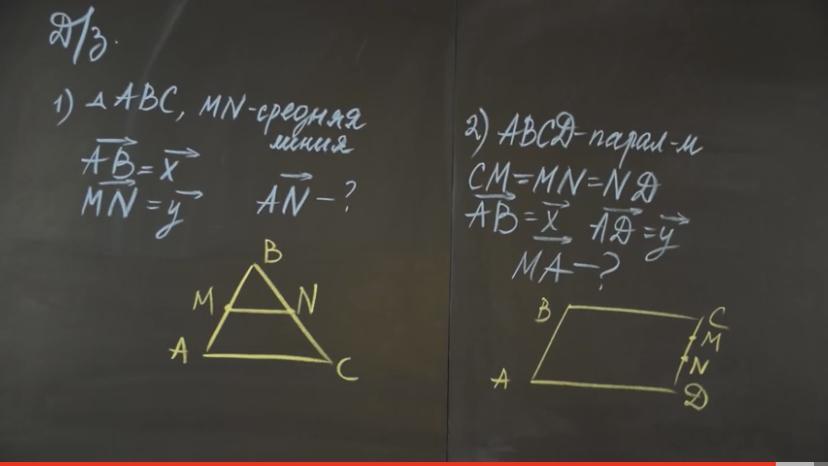 Д/з.
1) △ ABC, MN-средняя
линия
AB = x
MN = y
AN - ?
B
M
N
A
C
2) ABCD-парал-м
CM = MN = ND
AB = x AD = y
MA - ?
B
C
M
N
A
D